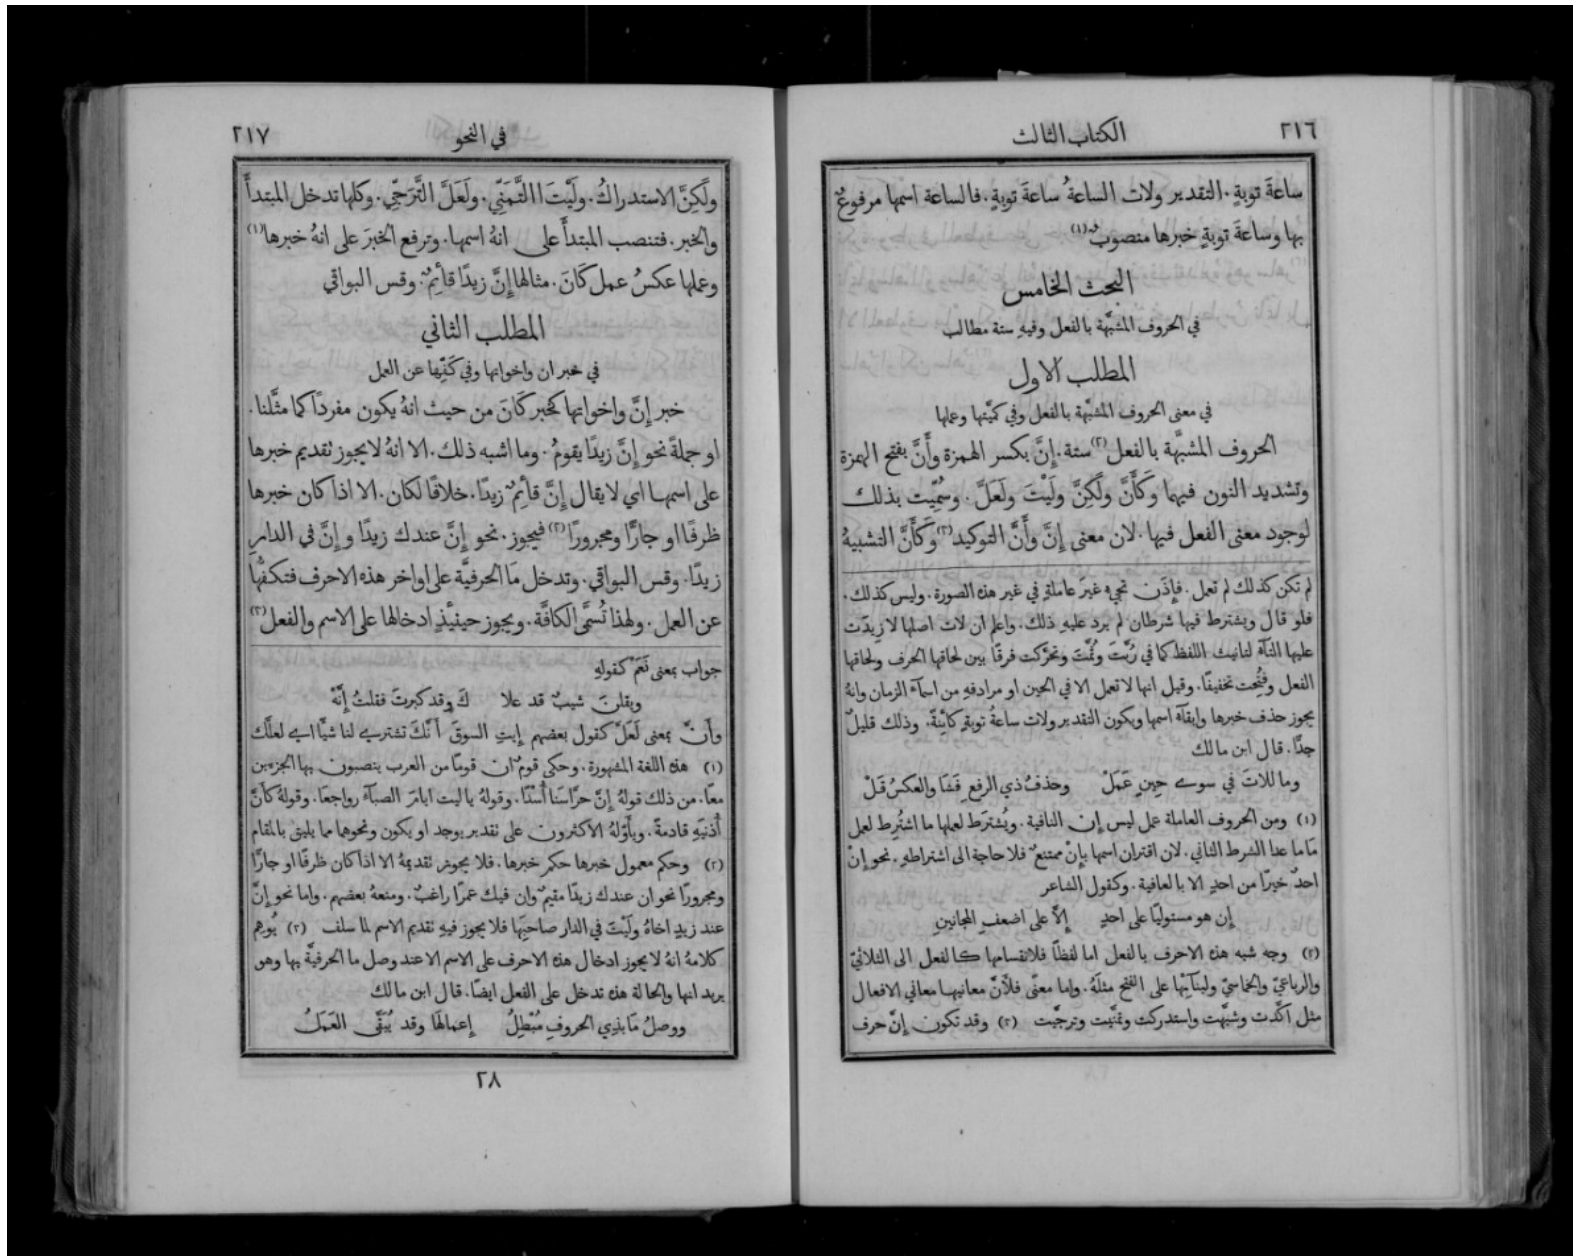 ٢١٦
الكتاب الثالث
ساعةَ توبةٍ. التقدير ولات الساعةُ ساعةَ توبةٍ. فالساعة اسمها مرفوعٌ
بها وساعةَ توبةٍ خبرها منصوبٌ(١)
البحث الخامس
في الحروف المشبَّهة بالفعل وفيهِ ستة مطالب
المطلب الاول
في معنى الحروف المشبَّهة بالفعل وفي كميَّتها وعملها
الحروف المشبَّهة بالفعل(٢) ستة. إِنَّ بكسر الهمزة وأَنَّ بفتح الهمزة
وتشديد النون فيهما وكَأَنَّ ولَكِنَّ ولَيْتَ ولَعَلَّ. وسُمِّيت بذلك
لوجود معنى الفعل فيها. لان معنى إِنَّ وأَنَّ التوكيد(٣) وكَأَنَّ التشبيهُ
لم تكن كذلك لم تعمل. فإِذَن تجيءُ غيرَ عاملةٍ في غير هذه الصورة. وليس كذلك.
فلو قال ويشترط فيها شرطان لم يرد عليهِ ذلك. واعلم ان لات اصلها لا زيدَت
عليها التآءُ لتانيث اللفظ كما في رُبَّتَ وثُمَّتَ وتحرَّكت فرقًا بين لحاقها الحرف ولحاقها
الفعل وفُتِحت تخفيفًا. وقيل انها لا تعمل الا في الحين او مرادفهِ من اسمآء الزمان وانهُ
يجوز حذف خبرها وابقآءُ اسمها ويكون التقدير ولات ساعةُ توبةٍ كائِنةً. وذلك قليلٌ
جدًّا. قال ابن مالك
وما للاتَ في سوى حِينٍ عَمَلْ وحذفُ ذي الرفعِ فَشَا والعكسُ قَلْ
(١) ومن الحروف العاملة عمل ليس إِن النافية. ويُشترَط لعملها ما اشتُرِط لعمل
مَا ما عدا الشرط الثاني. لان اقتران اسمها بإِنْ ممتنعٌ فلا حاجة الى اشتراطهِ. نحو إِنْ
احدٌ خيرًا من احدٍ الا بالعافية. وكقول الشاعر
إِن هو مستوليًا على احدٍ إِلَّا على اضعفِ المجانينِ
(٢) وجه شبه هذه الاحرف بالفعل اما لفظًا فلانقسامها كالفعل الى الثلاثيّ
والرباعيّ والخماسيّ ولبنآئِها على الفتح مثلَهُ. واما معنًى فلأَنَّ معانيها معاني الافعال
مثل اكَّدت وشبَّهت واستدركت وتمنَّيت وترجَّيت (٣) وقد تكون إِنَّ حرف
٢١٧
في النحو
ولَكِنَّ الاستدراكُ. ولَيْتَ االتَّمَنِّي. ولَعَلَّ التَّرَجِّي. وكلها تدخل المبتدأَ
والخبر. فتنصب المبتدأَ على انهُ اسمها. وترفع الخبرَ على انهُ خبرها(١)
وعملها عكسُ عمل كَانَ. مثالها إِنَّ زيدًا قائِمٌ. وقس البواقي
المطلب الثاني
في خبر ان واخواتها وفي كَفِّها عن العمل
خبر إِنَّ واخواتها كخبر كَانَ من حيث انهُ يكون مفردًا كما مثَّلنا.
او جملةً نحو إِنَّ زيدًا يقومُ. وما اشبه ذلك. الا انهُ لا يجوز تقديم خبرها
على اسمها اي لا يقال إِنَّ قائِمٌ زيدًا. خلافًا لكان. الا اذا كان خبرها
ظرفًا او جارًّا ومجرورًا(٢) فيجوز. نحو إِنَّ عندك زيدًا وإِنَّ في الدارِ
زيدًا. وقس البواقي. وتدخل مَا الحرفيَّة على اواخر هذه الاحرف فتكفُّها
عن العمل. ولهذا تُسَمَّى الكافَّة. ويجوز حينئِذٍ ادخالها على الاسم والفعل(٣)
جواب بمعنى نَعَمْ كقولهِ
ويقلنَ شيبٌ قد علا كَ وقد كبرتَ فقلتُ إِنَّهْ
وأَنَّ بمعنى لَعَلَّ كقول بعضهم إِيتِ السوقَ أَنَّكَ تشتري لنا شيًّا اي لعلَّك
(١) هذه اللغة المشهورة. وحكى قومٌ ان قومًا من العرب ينصبون بها الجزءين
معًا. من ذلك قولهُ إِنَّ حرَّاسَنا أُسْدًا. وقولهُ يا ليت ايامَ الصبآءِ رواجعَا. وقولهُ كأَنَّ
أُذنَيهِ قادمةً. ويأَوّلهُ الاكثرون على تقدير يوجد او يكون ونحوهما مما يليق بالمقام
(٢) وحكم معمول خبرها حكم خبرها. فلا يجوز تقديمهُ الا اذا كان ظرفًا او جارًّا
ومجرورًا نحو ان عندك زيدًا مقيمٌ وان فيك عمرًا راغبٌ. ومنعهُ بعضهم. واما نحو إِنَّ
عند زيدٍ اخاهُ ولَيْتَ في الدار صاحبَها فلا يجوز فيهِ تقديم الاسم لما سلف (٣) يُوهم
كلامهُ انهُ لا يجوز ادخال هذه الاحرف على الاسم الا عند وصل ما الحرفيَّة بها وهو
يريد انها والحالة هذه تدخل على الفعل ايضًا. قال ابن مالك
ووصلُ مَا بذِي الحروفِ مُبْطِلُ إِعمالَها وقد يُبَقَّى العَمَلُ
٢٨